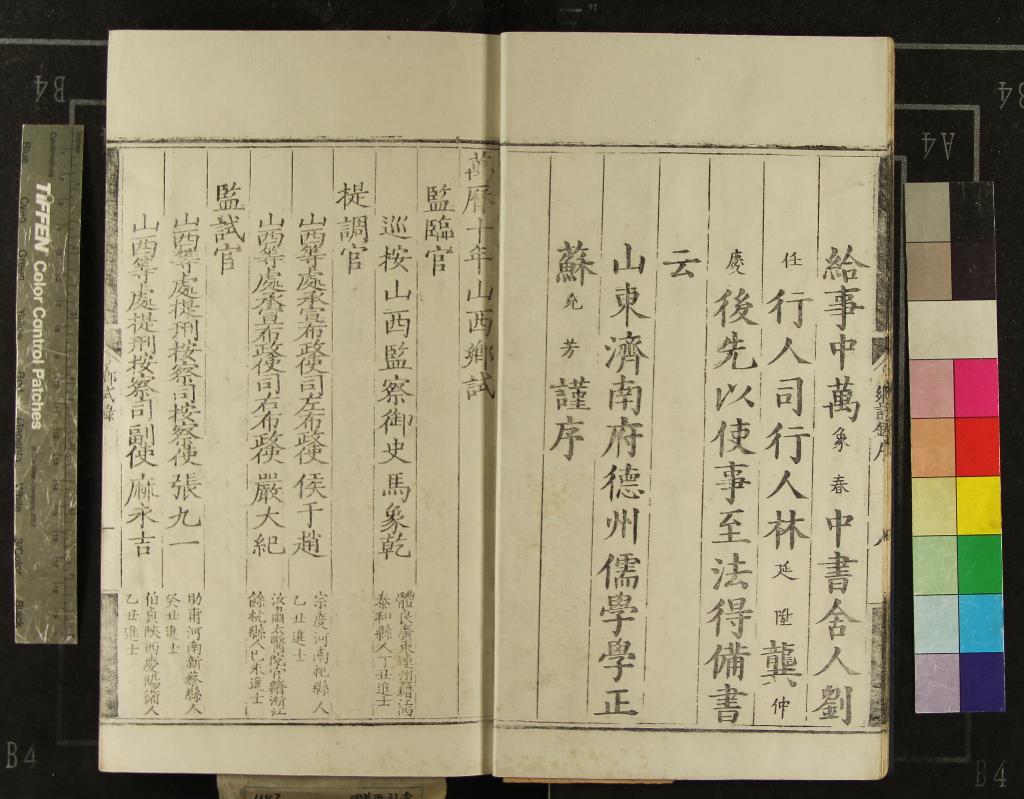 給事中萬象春中書舍人劉
任行人司行人林延陞龔仲
慶後先以使事至法得備書
云
山東濟南府德州儒學學正
蘇允芳謹序
萬曆十年山西鄉試
監臨官
巡按山西監察御史馬象乾
體良廣東連州籍
泰和縣人丁丑進士
提調官
山西等處承宣布政使司左布政使侯于趙
宗度河南杞縣人
乙丑進士
山西等處承宣布政使司右布政使嚴大紀
汝肅太醫院官籍浙江
餘杭縣人己未進士
監試官
山西等處提刑按察司按察使張九一
助甫河南新蔡縣人
癸丑進士
山西等處提刑按察司副使麻永吉
伯貞陝西慶陽衛人
乙丑進士
鄉試錄序
鄉試錄
TIFFEN Color Control Patches
B4
A4
B4
B4
B4